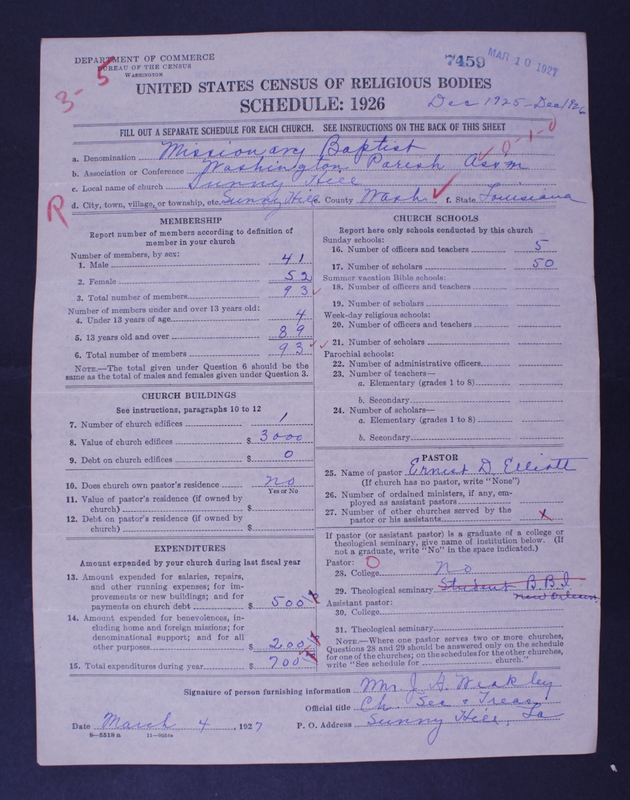 DEPARTMENT OF COMMERCE
BUREAU OF THE CENSUS
WASHINGTON
3-5
7459
MAR 10 1927
UNITED STATES CENSUS OF RELIGIOUS BODIES
SCHEDULE: 1926
Dec 1925-Dec 1926
FILL OUT A SEPARATE SCHEDULE FOR EACH CHURCH. SEE INSTRUCTIONS ON THE BACK OF THIS SHEET
0-1-0
a. Denomination Missionary Baptist
b. Association or Conference Washington Parish Assm
c. Local name of church Sunny Hill
R
d. City, town, village, or township, etc. Sunny Hill e. County Wash. f. State Louisiana
MEMBERSHIP
Report number of members according to definition of member in your church
Number of members, by sex:
1. Male 41
2. Female 52
3. Total number of members 93
Number of members under and over 13 years old:
4. Under 13 years of age 4
5. 13 years old and over 89
6. Total number of members 93
NOTE.—The total given under Question 6 should be the same as the total of males and females given under Question 3.
CHURCH BUILDINGS
See instructions, paragraphs 10 to 12
7. Number of church edifices 1
8. Value of church edifices $ 3000
9. Debt on church edifices $ 0
10. Does church own pastor's residence no
Yes or No
11. Value of pastor's residence (if owned by church) $
12. Debt on pastor's residence (if owned by church) $
EXPENDITURES
Amount expended by your church during last fiscal year
13. Amount expended for salaries, repairs, and other running expenses; for improvements or new buildings; and for payments on church debt $ 500
14. Amount expended for benevolences, including home and foreign missions; for denominational support; and for all other purposes $ 200
15. Total expenditures during year $ 700
CHURCH SCHOOLS
Report here only schools conducted by this church
Sunday schools:
16. Number of officers and teachers 5
17. Number of scholars 50
Summer vacation Bible schools:
18. Number of officers and teachers
19. Number of scholars
Week-day religious schools:
20. Number of officers and teachers
21. Number of scholars
Parochial schools:
22. Number of administrative officers
23. Number of teachers—
a. Elementary (grades 1 to 8)
b. Secondary
24. Number of scholars—
a. Elementary (grades 1 to 8)
b. Secondary
PASTOR
25. Name of pastor Ernest D. Elliott
(If church has no pastor, write "None")
26. Number of ordained ministers, if any, employed as assistant pastors
27. Number of other churches served by the pastor or his assistants x
If pastor (or assistant pastor) is a graduate of a college or theological seminary, give name of institution below. (If not a graduate, write "No" in the space indicated.)
Pastor: O
28. College No
29. Theological seminary Student B.B.I
New Orleans
Assistant pastor:
30. College
31. Theological seminary
NOTE.—Where one pastor serves two or more churches, Questions 28 and 29 should be answered only on the schedule for one of the churches; on the schedules for the other churches, write "See schedule for ______ church."
Signature of person furnishing information Mrs J. G. Weakley
Official title Ch. Sec & Treas
Date March 4, 1927
P. O. Address Sunny Hill, La
8-5518 a